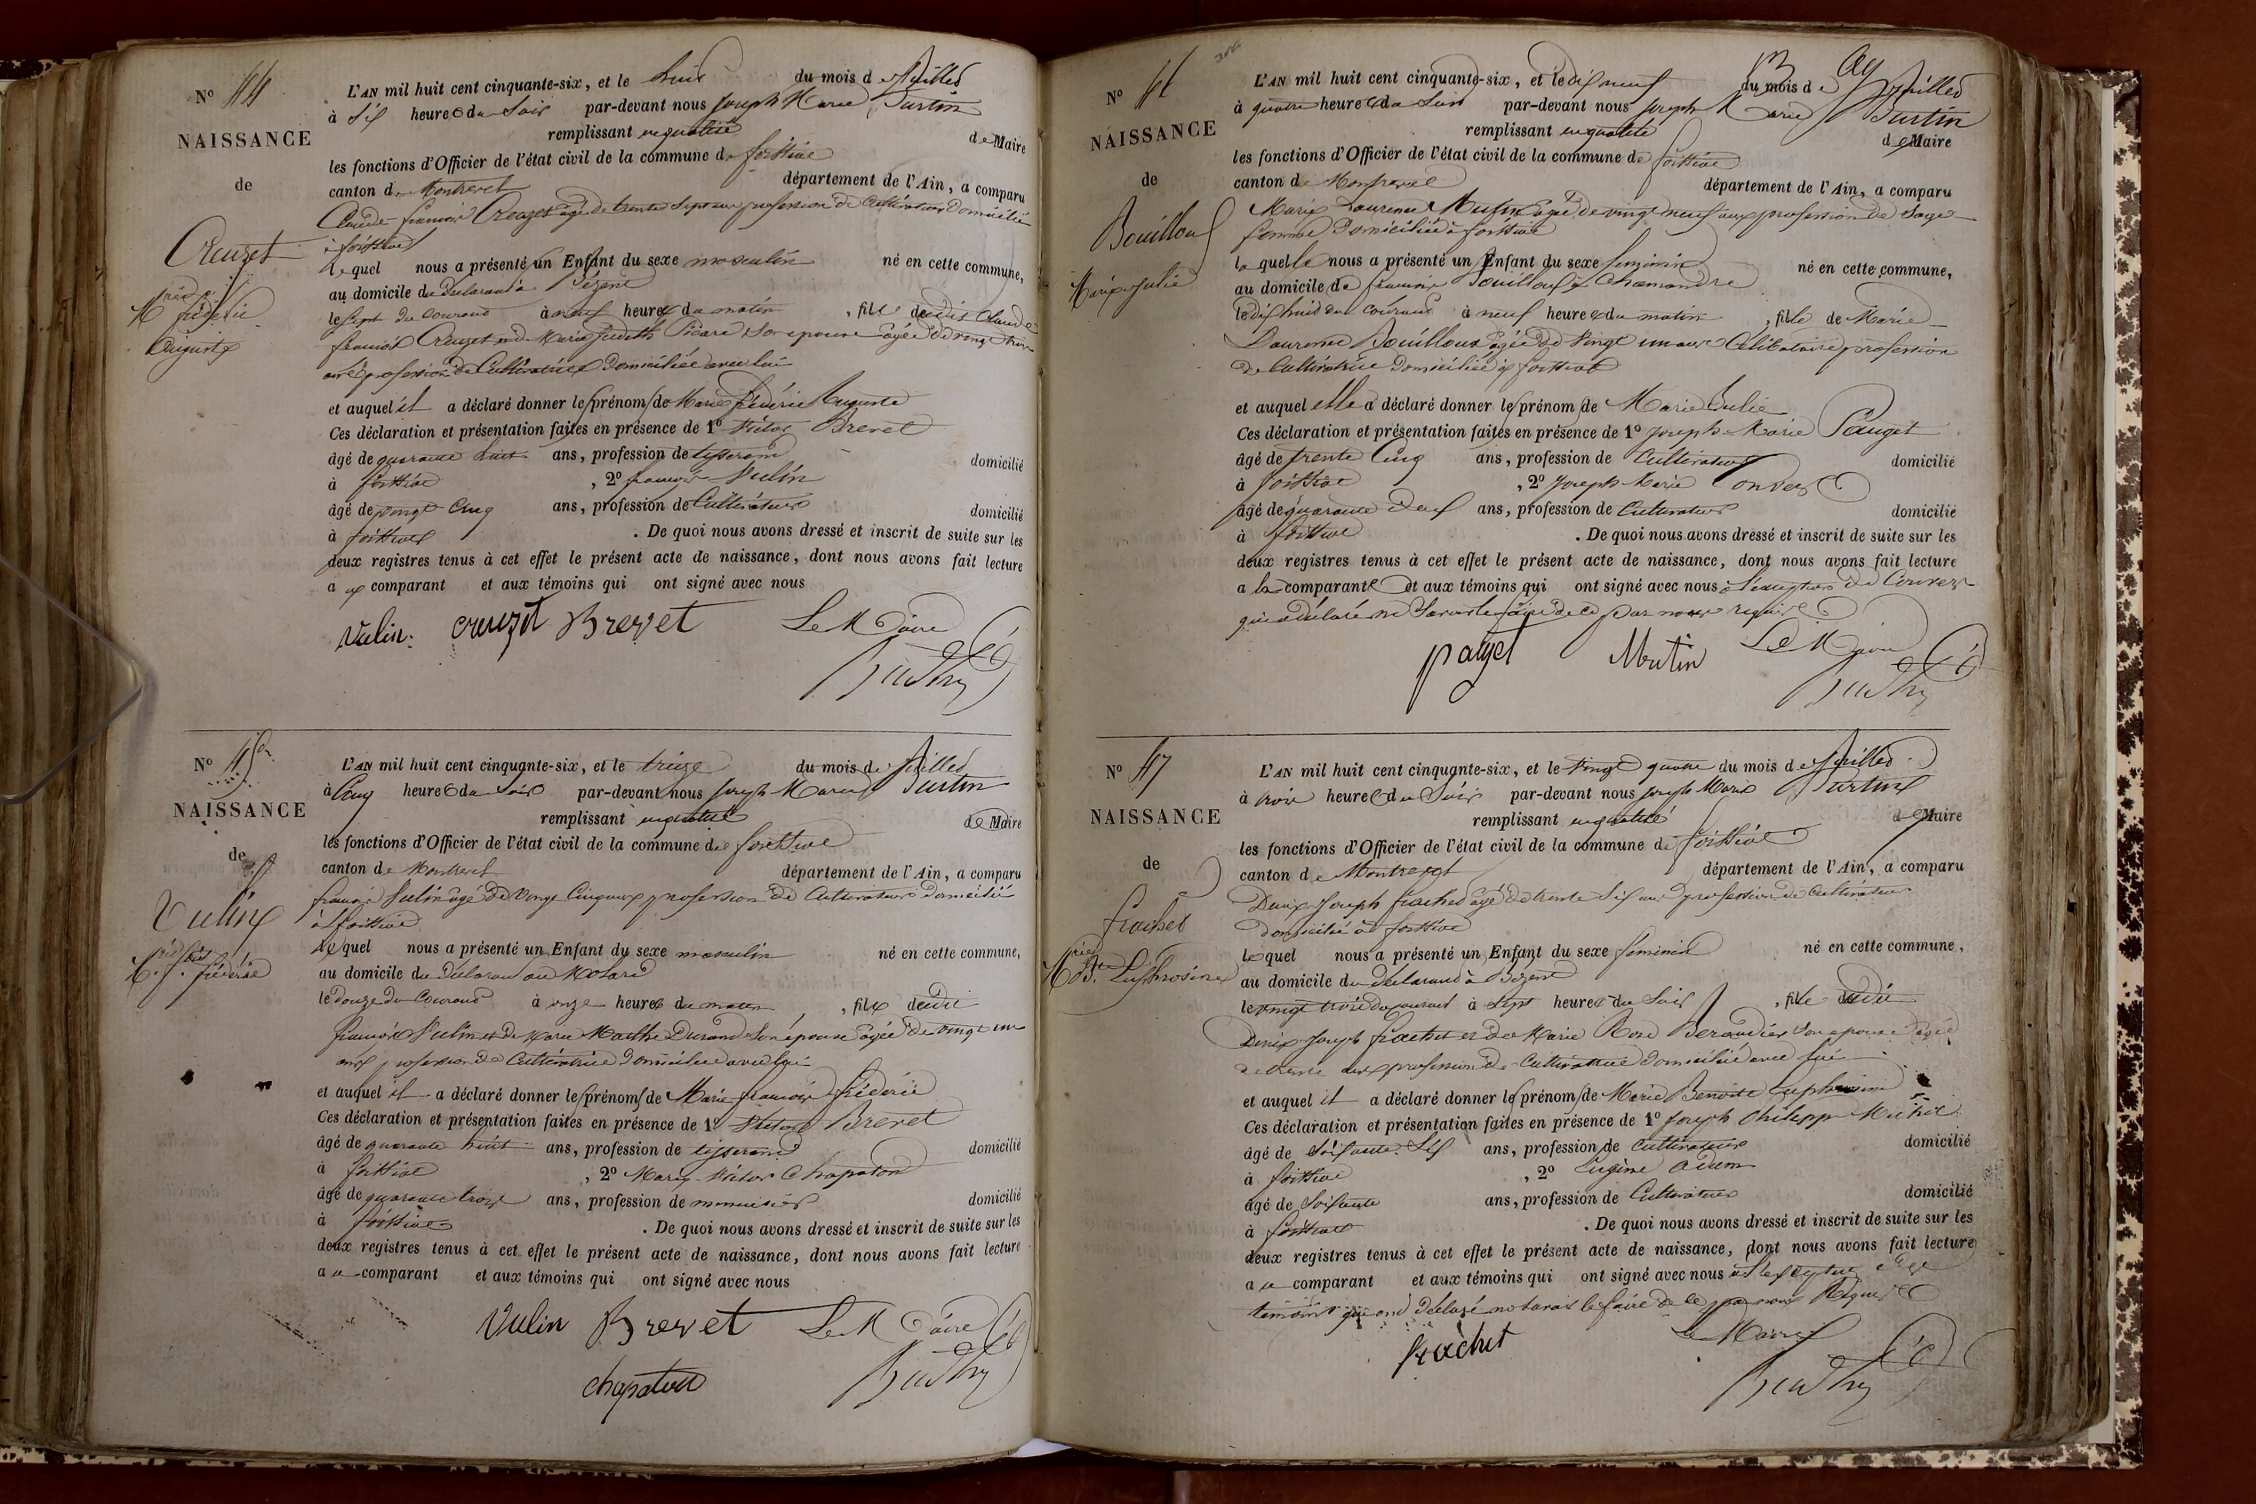 N° 44
NAISSANCE
de
Creuzet
M
frédéric
Auguste
L'AN mil huit cent cinquante-six, et le huit du mois de Juillet
à Six heures du Soir par-devant nous Joseph Marie
remplissant en qualité de Maire
les fonctions d'Officier de l'état civil de la commune de foissiat
canton de Montrevel département de l'Ain, a comparu
Claude françois Creuzet âgé de trente Sept ans profession de Cultivateur domicilié
à foissiat
Lequel nous a présenté un Enfant du sexe masculin né en cette commune,
au domicile du Déclarant à
le Sept du Courant à neuf heures du matin, fils dudit Claude
françois Creuzet et de Marie Judith son épouse âgée de vingt
ans profession de Cultivatrice Domiciliée avec lui
et auquel il a déclaré donner les prénoms de Marie frédéric Auguste
Ces déclaration et présentation faites en présence de 1° Victor Brevet
âgé de quarante huit ans, profession de tisserand domicilié
à foissiat, 2° françois Vulin
âgé de vingt Cinq ans, profession de Cultivateur domicilié
à foissiat. De quoi nous avons dressé et inscrit de suite sur les
deux registres tenus à cet effet le présent acte de naissance, dont nous avons fait lecture
au comparant et aux témoins qui ont signé avec nous
Vulin. Creuzet Brevet Le Maire
N° 45
NAISSANCE
de
Vulin
frédéric
L'AN mil huit cent cinquante-six, et le treize du mois de Juillet
à Cinq heures du Soir par-devant nous Joseph Marie
remplissant en qualité de Maire
les fonctions d'Officier de l'état civil de la commune de foissiat
canton de Montrevel département de l'Ain, a comparu
françois Vulin âgé de vingt Cinq ans profession de Cultivateur domicilié
à foissiat
Lequel nous a présenté un Enfant du sexe masculin né en cette commune,
au domicile du Déclarant au
le douze du Courant à onze heures du matin, fils dudit
françois Vulin et de Marie Marthe Durand Son épouse âgée de vingt un
ans profession de Cultivatrice domiciliée avec lui
et auquel il a déclaré donner les prénoms de Marie françois frédéric
Ces déclaration et présentation faites en présence de 1° Victor Brevet
âgé de quarante huit ans, profession de tisserand domicilié
à foissiat, 2° Marie Victor Chapaton
âgé de quarante trois ans, profession de menuisier domicilié
à foissiat. De quoi nous avons dressé et inscrit de suite sur les
deux registres tenus à cet effet le présent acte de naissance, dont nous avons fait lecture
au comparant et aux témoins qui ont signé avec nous
Vulin Brevet Le Maire
chapaton
N° 46
NAISSANCE
de
Bouilloux
Marie Julie
L'AN mil huit cent cinquante-six, et le dix neuf du mois de Juillet
à quatre heures du Soir par-devant nous Joseph Marie
remplissant en qualité de Maire
les fonctions d'Officier de l'état civil de la commune de foissiat
canton de Montrevel département de l'Ain, a comparu
Marie Laurence Mutin âgée de vingt neuf ans profession de Sage
femme Domiciliée à foissiat
laquelle nous a présenté un Enfant du sexe féminin né en cette commune,
au domicile de françois Bouilloux à Chamandre
le dix huit du Courant à neuf heures du matin, fille de Marie
Laurence Bouilloux âgée de Vingt un ans Célibataire profession
de Cultivatrice domiciliée à foissiat
et auquel elle a déclaré donner les prénoms de Marie Julie
Ces déclaration et présentation faites en présence de 1° Joseph Marie Pauget
âgé de trente Cinq ans, profession de Cultivateur domicilié
à foissiat, 2° Joseph Marie Convers
âgé de quarante Deux ans, profession de Cultivateur domicilié
à foissiat. De quoi nous avons dressé et inscrit de suite sur les
deux registres tenus à cet effet le présent acte de naissance, dont nous avons fait lecture
a la comparante et aux témoins qui ont signé avec nous à l'exception de Convers
qui a déclaré ne Savoir le faire de ce par nous requis
pauget Mutin Le Maire
N° 47
NAISSANCE
de
frachet
Euphrosine
L'AN mil huit cent cinquante-six, et le Vingt quatre du mois de Juillet
à trois heures du Soir par-devant nous Joseph Marie
remplissant en qualité de Maire
les fonctions d'Officier de l'état civil de la commune de foissiat
canton de Montrevel département de l'Ain, a comparu
Denis Joseph frachet âgé de trente Six ans profession de Cultivateur
domicilié à foissiat
lequel nous a présenté un Enfant du sexe féminin né en cette commune,
au domicile du déclarant à
le vingt trois du courant à Sept heures du Soir, fille dudit
Denis Joseph frachet et de Marie Rose Son épouse âgée
de trente ans profession de Cultivatrice domiciliée avec lui
et auquel il a déclaré donner les prénoms de Marie Benoite Euphrosine
Ces déclaration et présentation faites en présence de 1° Joseph Philippe
âgé de Soixante Six ans, profession de Cultivateur domicilié
à foissiat, 2° Eugène Adam
âgé de Soixante ans, profession de Cultivateur domicilié
à foissiat. De quoi nous avons dressé et inscrit de suite sur les
deux registres tenus à cet effet le présent acte de naissance, dont nous avons fait lecture
au comparant et aux témoins qui ont signé avec nous à l'exception des
témoins qui ont déclaré ne Savoir le faire de ce par nous Requis
frachet Le Maire